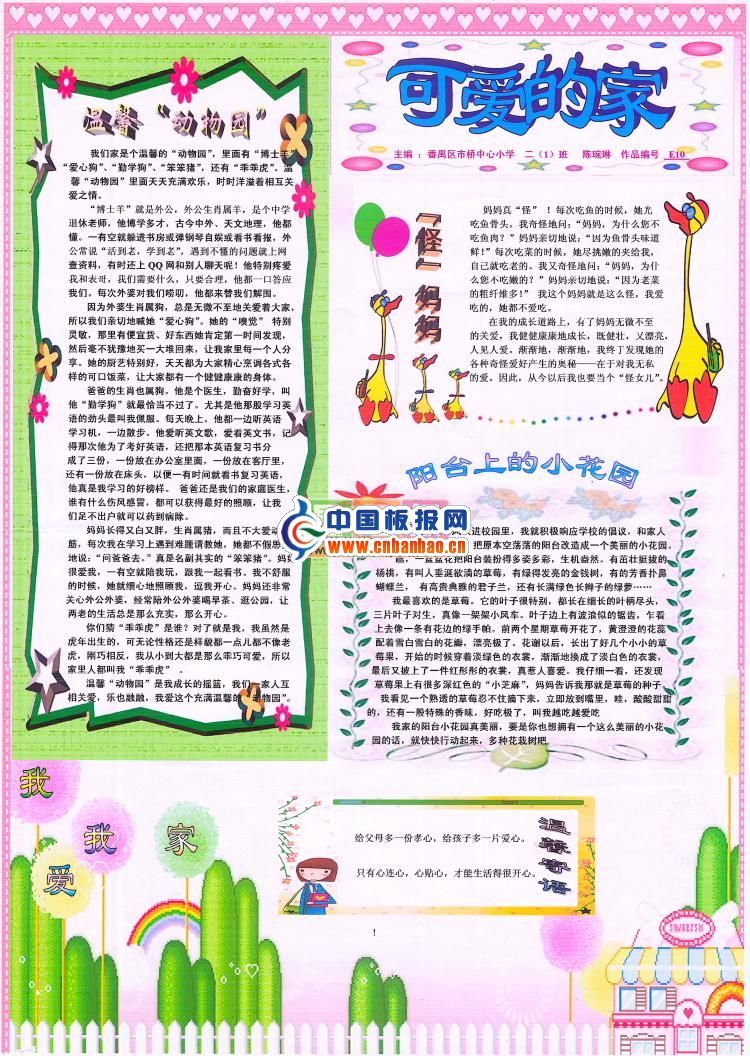 可爱的家
主编 ：番禺区市桥中心小学 二（1）班 陈琬琳 作品编号 E10
温馨“动物园”
我们家是个温馨的“动物园”，里面有“博士羊”
“爱心狗”、“勤学狗”、“笨笨猪”，还有“乖乖虎”。温
馨“动物园”里面天天充满欢乐，时时洋溢着相互关
爱之情。
“博士羊”就是外公，外公生肖属羊，是个中学
退休老师，他博学多才，古今中外、天文地理，他都
懂。一有空就躲进书房或弹钢琴自娱或看书看报，外
公常说“活到老，学到老”，遇到不懂的问题就上网
查资料，有时还上 QQ 网和别人聊天呢！他特别疼爱
我和表哥，我们需要什么，只要合理，他都一口答应
我们。每次外婆对我们唠叨，他都来替我们解围。
因为外婆生肖属狗，总是无微不至地关爱着大家，
所以我们亲切地喊她“爱心狗”。她的“嗅觉” 特别
灵敏，那里有便宜货、好东西她肯定第一时间发现，
然后毫不犹豫地买一大堆回来，让我家里每一个人分
享。她的厨艺特别好，天天都为大家精心烹调各式各
样的可口饭菜，让大家都有一个健健康康的身体。
爸爸的生肖也属狗。他是个医生，勤奋好学，叫
他“勤学狗”就最恰当不过了。尤其是他那股学习英
语的劲头最叫我佩服。每天晚上，他都一边听英语
学习机，一边散步。他爱听英文歌，爱看英文书，记
得那次他为了考好英语，还把那本英语复习书分
成了三份，一份放在办公室里面，一份放在客厅里，
还有一份放在床头，以便一有时间就看书复习英语，
他真是我学习的好榜样。 爸爸还是我们的家庭医生，
谁有什么伤风感冒，都可以获得最好的照顾，让我
们足不出户就可以药到病除。
妈妈长得又白又胖，生肖属猪，而且不大爱动
筋，每次我在学习上遇到难题请教她，她都不假思
地说：“问爸爸去。”真是名副其实的“笨笨猪”。妈妈
很爱我，一有空就陪我玩，跟我一起看书。我不舒服
的时候，她就细心地照顾我，逗我开心。妈妈还非常
关心外公外婆，经常陪外公外婆喝早茶、逛公园，让
两老的生活总是那么充实，那么开心。
你们猜“乖乖虎”是谁？对了就是我，我虽然是
虎年出生的，可无论性格还是样貌都一点儿都不像老
虎，刚巧相反，我从小到大都是那么乖巧可爱，所以
家里人都叫我“乖乖虎” 。
温馨“动物园”是我成长的摇篮，我们一家人互
相关爱，乐也融融，我爱这个充满温馨的“动物园”。
“怪”妈妈
妈妈真“怪” ！每次吃鱼的时候，她光
吃鱼骨头，我奇怪地问：“妈妈，为什么您不
吃鱼肉？”妈妈亲切地说：“因为鱼骨头味道
鲜！”每次吃菜的时候，她尽挑嫩的夹给我，
自己就吃老的。我又奇怪地问：“妈妈，为什
么您不吃嫩的？”妈妈亲切地说：“因为老菜
的粗纤维多！” 我这个妈妈就是这么怪，我爱
吃的，她都不爱吃。
在我的成长道路上，有了妈妈无微不至
的关爱，我健健康康地成长，既健壮，又漂亮，
人见人爱。渐渐地，渐渐地，我终于发现她的
各种奇怪爱好产生的奥秘——在于对我无私
的爱。因此，从今以后我也要当个“怪女儿”。
阳台上的小花园
中国板报网
www.cnbanbao.cn
进校园里，我就积极响应学校的倡议，和家人
把原本空荡荡的阳台改造成一个美丽的小花园。
一盆盆花把阳台装扮得多姿多彩，生机盎然。有茁壮挺拔的
杨桃，有叫人垂涎欲滴的草莓，有绿得发亮的金钱树，有的芳香扑鼻
蝴蝶兰， 有高贵典雅的君子兰，还有长满绿色长辫子的绿萝……
我最喜欢的是草莓。它的叶子很特别，都长在细长的叶柄尽头，
三片叶子对生，真像一架架小风车。叶子边上有波浪似的锯齿，乍看
上去像一条有花边的绿手帕。前两个星期草莓开花了，黄澄澄的花蕊
配着雪白雪白的花瓣，漂亮极了。花谢以后，长出了好几个小小的草
莓果，开始的时候穿着淡绿色的衣裳，渐渐地换成了淡白色的衣裳，
最后又披上了一件红彤彤的衣裳，真惹人喜爱。我仔细一看，还发现
草莓果上有很多深红色的“小芝麻”，妈妈告诉我那就是草莓的种子
我看见一个熟透的草莓忍不住摘下来，立即放到嘴里，哇，酸酸甜甜
的，还有一股特殊的香味，好吃极了，叫我越吃越爱吃
我家的阳台小花园真美丽，要是你也想拥有一个这么美丽的小花
园的话，就快快行动起来，多种花栽树吧
我
爱
我
家
温馨寄语
给父母多一份孝心，给孩子多一片爱心。
只有心连心，心贴心，才能生活得很开心。
！
SWEETSH